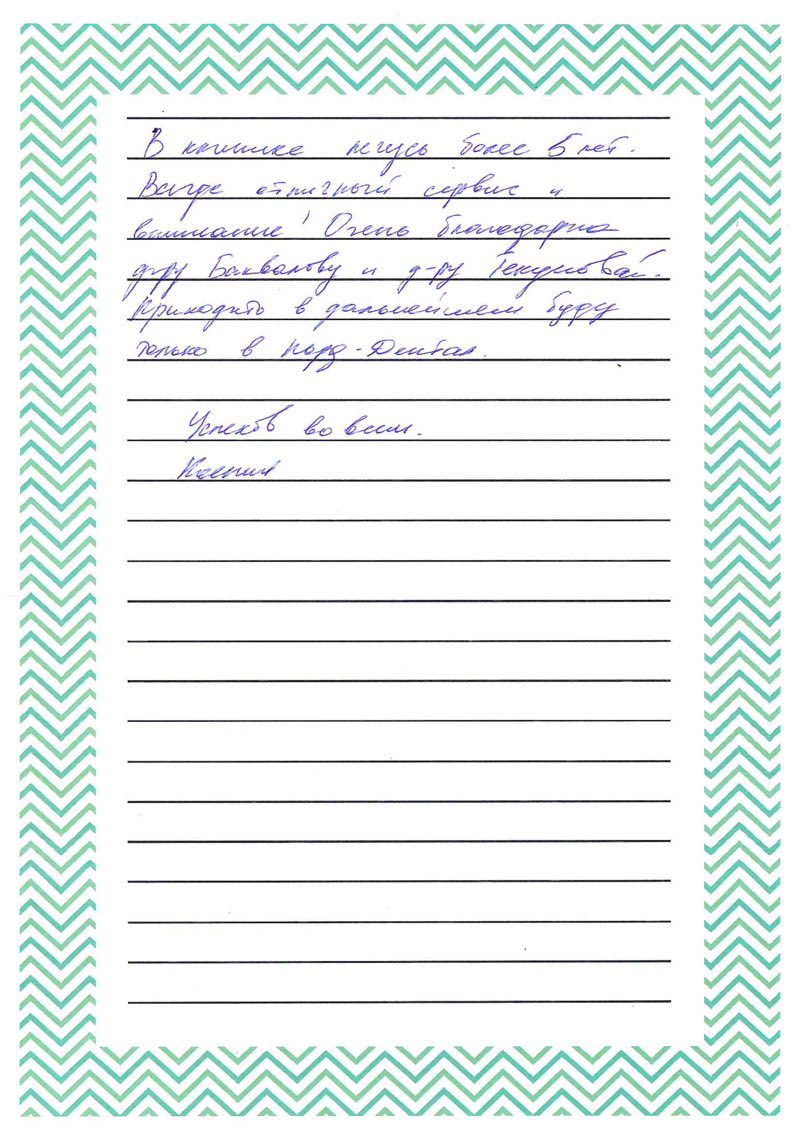 В клинике лечусь более 5 лет.
Везде отличный сервис и
внимание! Очень благодарна
д-ру Бахвалову и д-ру Текучёвой.
Приходить в дальнейшем буду
только в Норд-Дентал.
Успехов во всем.
Ксения